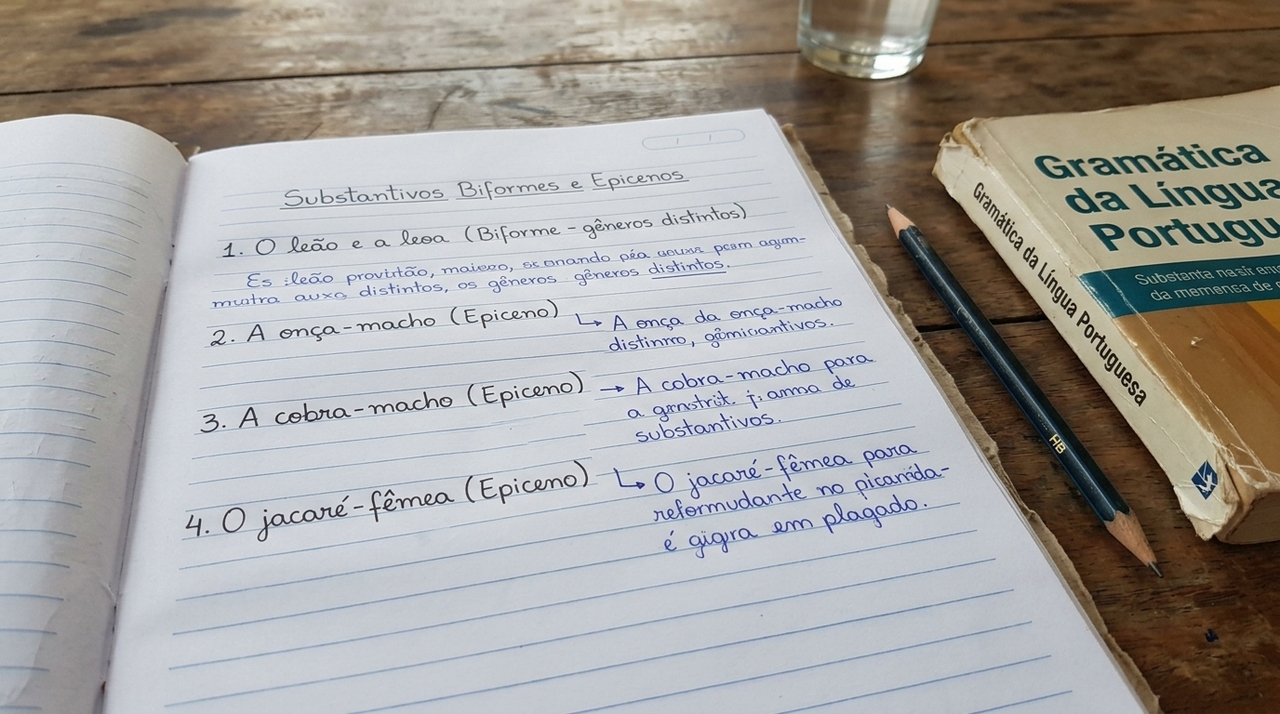 Substantivos Biformes e Epicenos
1. O leão e a leoa (Biforme - gêneros distintos)
Es leão provirtão, maiseo, péa
mustra auxa distintos, os gêneros gêneros distintos.
2. A onça-macho (Epiceno)
↳ A onça da onça-macho
distinmo, gômicantivos.
3. A cobra-macho (Epiceno)
→ A cobra-macho para
a de
substantivos.
4. O jacaré-fêmea (Epiceno)
↳ O jacaré-fêmea para
reformudante no picamida-
é gigra em plagado.
HB
Gramática
da Língua
Portugu
Substanta
da memensa de
Gramática da Língua Portuguesa